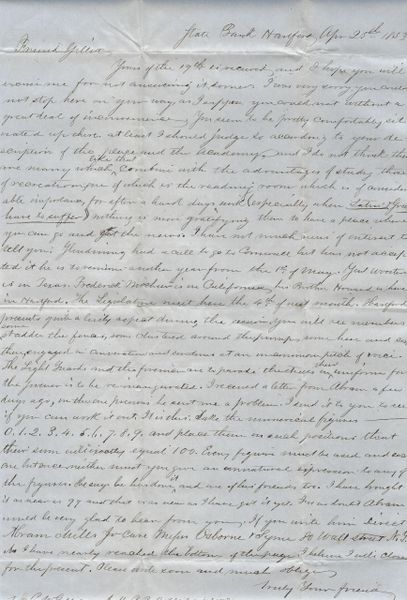 State Bank Hartford, Apr 25th 185
Friend Gillet
Yours of the 19th is received, and I hope you will
excuse me for not answering it sooner. I was very sorry you could
not stop here on your way as I suppose you could not without a
great deal of inconvenience. You seem to be pretty comfortably sit
uated up there, at least I should judge so according to your de
scription of the place and the academy, and I do not think there
are many which combine with the advantages of study those
like that
of recreation, one of which is the reading room which is of consider
able importance, for after a hard days work (especially when Latin &
have to suffer) nothing is more gratifying than to have a place where
you can go and get the news. I have not much news of interest to
tell you. Glendinning had a call to go to Cornwall but has not accep
ted it he is to remain another year from the 1st of May.
is in Texas. Frederick is in California, his Brother Howard is here
in Hartford. The Legislature meet here the 4th of next month. Hartford
presents quite a lively aspect during the session, you will see members
some
astride the fences, some clustered around the pump, some here and some
there, engaged in conversation and condemn at an uncommon pitch of voice.
The Light Guards and the firemen are to parade the streets in uniform for
their
the Governor is to be re-inaugurated. I received a letter from Abram a few
days ago, in the one previous he sent me a problem. I send it to you to see
if you can work it out. It is this. Take the numerical figures
0, 1, 2, 3, 4, 5, 6, 7, 8, 9, and place them in such positions that
their sum will exactly equal 100. Every figure must be used and
but once, neither must you give an unnatural expression to any of
the figures. He says he has done it and one of his friends too. I have brought
it as near as 99 and that was as near as I have got it yet. I've no doubt Abram
would be very glad to hear from you, if you write him Direct
Abram Mills Jr Care Messrs Osborne & 40 Wall Street N.Y.
As I have nearly reached the bottom of the page, I believe I will close
for the present. Please write soon and much oblige
Truly Your friend